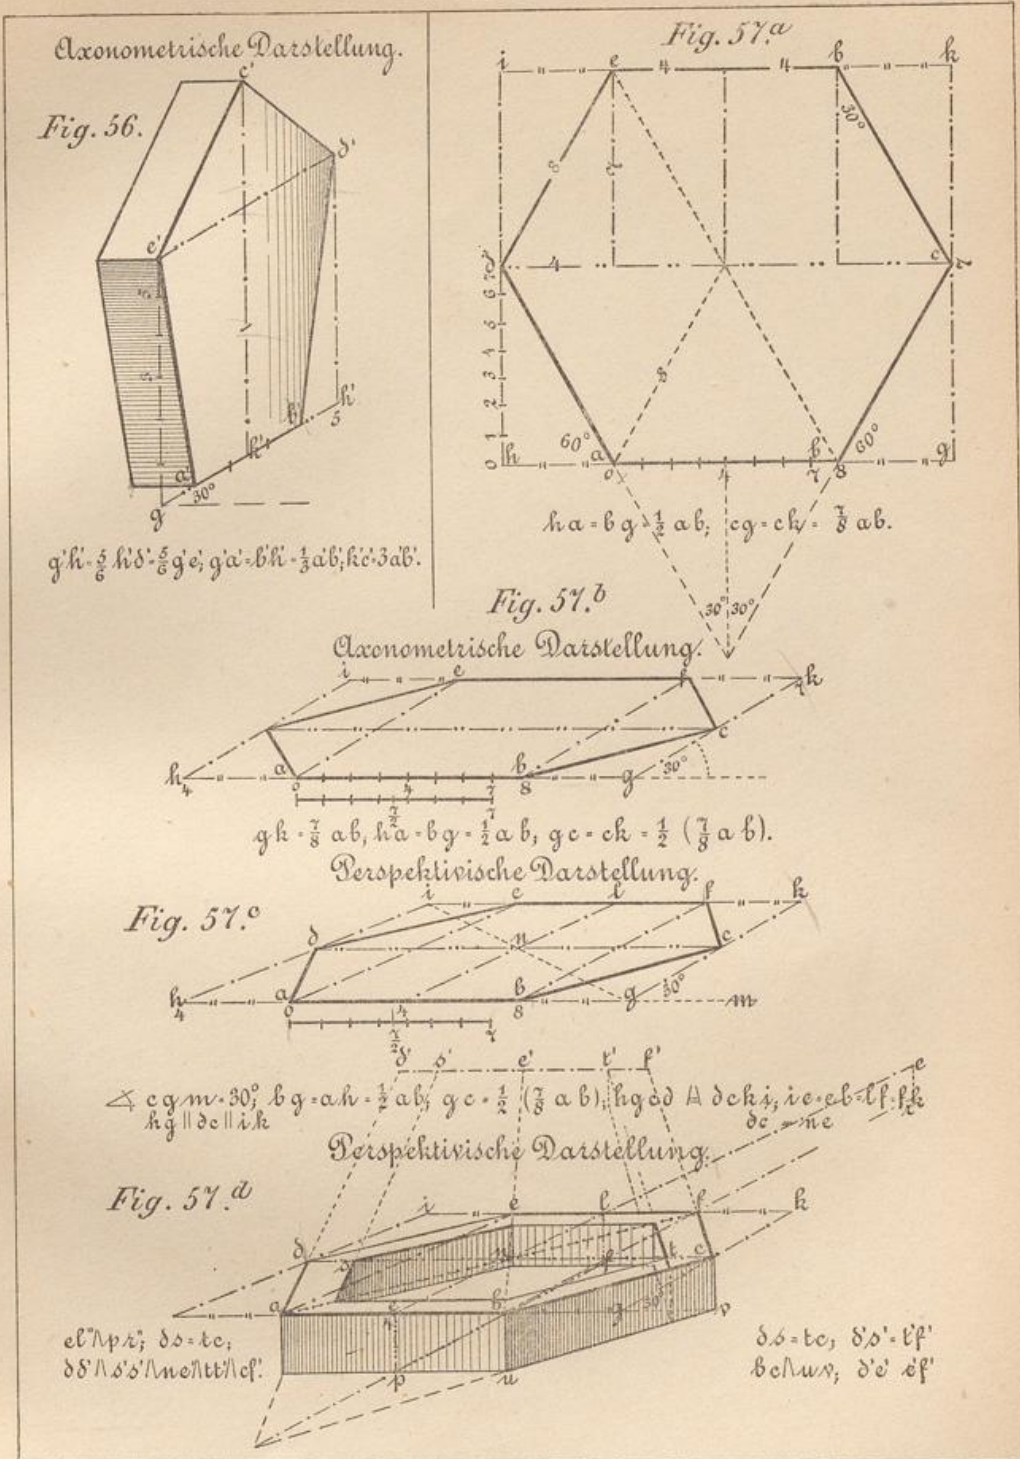 Axonometrische Darstellung.
Fig. 56.
c'
d'
e'
a'
b'
k'
h'
5
30°
g
g'h'=5/6 h'd'=5/6 g'e'; g'a'=b'h'=1/3 a'b'; k'c'=3a'b'.
Fig. 57.a
i e 4 4 b k
30°
8
7
4
c 7
6
5
4
3
2
1
0
8
h 60° a b 60° g
0 4 7 8
ha = bg = 1/2 ab; cg = ck = 7/8 ab.
30° 30°
Fig. 57.b
Axonometrische Darstellung.
i e f k
c
h a b g 30°
4 0 4 7 8
7/2 7
gk = 7/8 ab, ha = bg = 1/2 ab; gc = ck = 1/2 (7/8 ab).
Perspektivische Darstellung.
Fig. 57.c
i e l f k
d n c
h a b g 30° m
4 0 4 8
7/2 7
d' s' e' t' f' e
∡ cgm = 30°; bg = ah = 1/2 ab; gc = 1/2 (7/8 ab); hgcd ⩍ dcki; ie = el = lf = fk
hg || dc || ik
dc = ne
Perspektivische Darstellung.
Fig. 57.d
i e l f k
d s n t c
a b g 30° v
p u
ds = tc;
ds = tc, d's' = t'f'